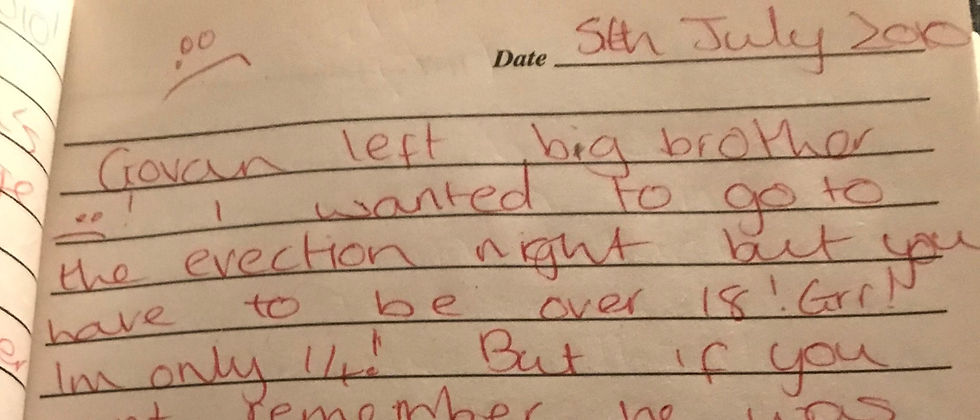 Date 5th July 2010
Govan left big brother
! I wanted to go to
the erection night but you
have to be over 18! Grr!
Im only 14! But if you
remember he was